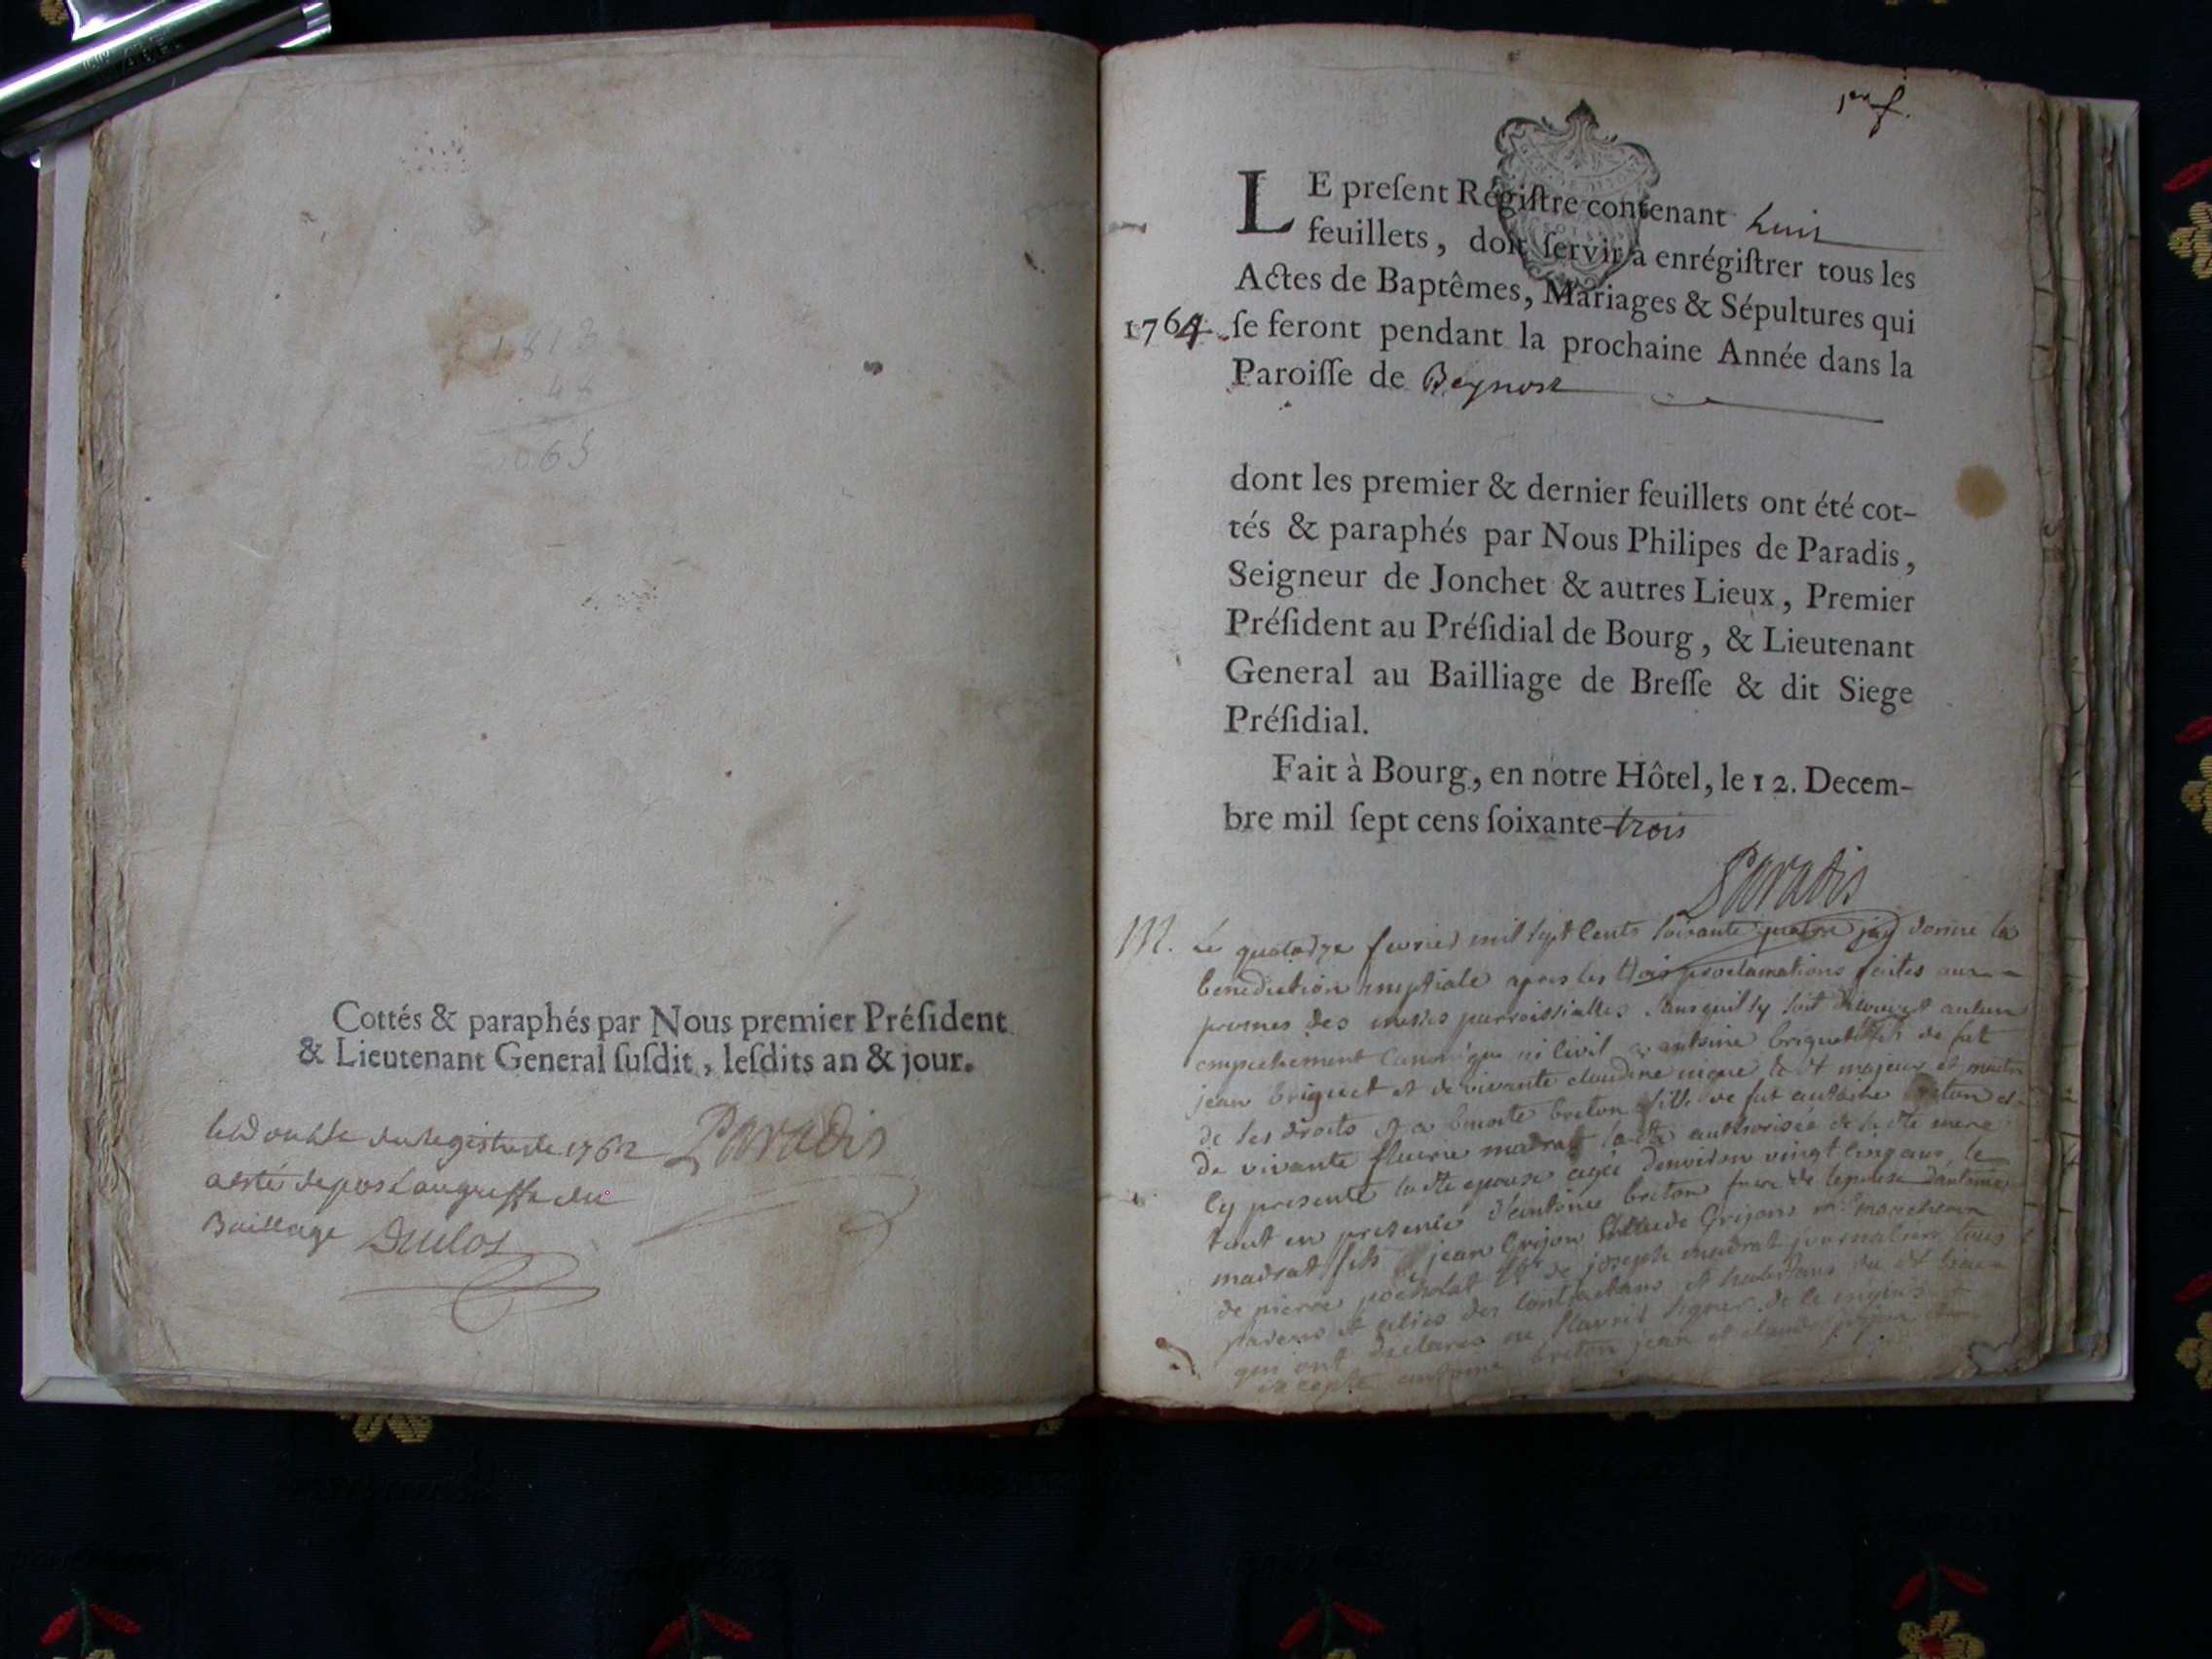 1813
48
065
Cottés & paraphés par Nous premier Préſident
& Lieutenant General ſuſdit, leſdits an & jour.
le double du registre de 1762 Paradis
a esté deposé au greffe du
Bailliage Duclos
1er f.
LE preſent Régiſtre contenant huit
feuillets, doit ſervir à enrégiſtrer tous les
Actes de Baptêmes, Mariages & Sépultures qui
1764 ſe feront pendant la prochaine Année dans la
Paroiſſe de Beynost
dont les premier & dernier feuillets ont été cot-
tés & paraphés par Nous Philipes de Paradis,
Seigneur de Jonchet & autres Lieux, Premier
Préſident au Préſidial de Bourg, & Lieutenant
General au Bailliage de Breſſe & dit Siege
Préſidial.
Fait à Bourg, en notre Hôtel, le 12. Decem-
bre mil ſept cens ſoixante-trois
Paradis
M. Le quatorze fevrier mil sept cents soixante quatre jay donné la
benediction nuptiale apres les trois proclamations faites aux
prosnes des messes parroissialles sans quil sy soit decouvert aucun
empechement canonique ni civil a antoine briquet fils de fut
jean briquet et de vivante claudine le dt majeur et maitre
de ses droits et a benoite breton fille de fut antoine breton et
de vivante fleurie madrat la dte authorisée de sa dte mere
cy presente la dte epouse agée denviron vingt cinq ans le
tout en presence d'antoine breton frere de lepouse d'antoine
madrat fils jean Grijon Claude Grijons
de pierre de joseph madrat journalier tous
parens et aliés des contractans et habitans du dt
qui ont declarés ne sçavoir signer de ce enquis
excepté antoine breton jean et claude grijon